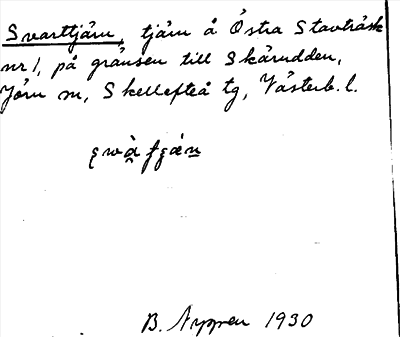 Svarttjärn, tjärn å Östra Stavträsk
nr 1, på gränsen till Skärudden,
Jörn sn, Skellefteå tg, Västerb. l.
B. Nyppen 1930